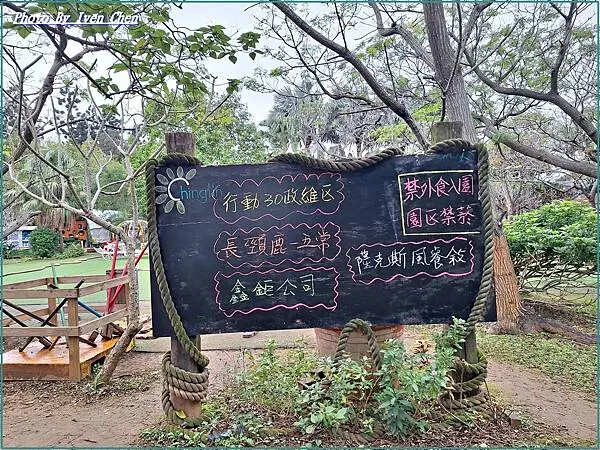 Photo By Iven Chen
Chinglin
行動30政維区
長頸鹿 五常
鑫鉅公司
禁外食入園
園区禁菸
陸克斯风餐敘